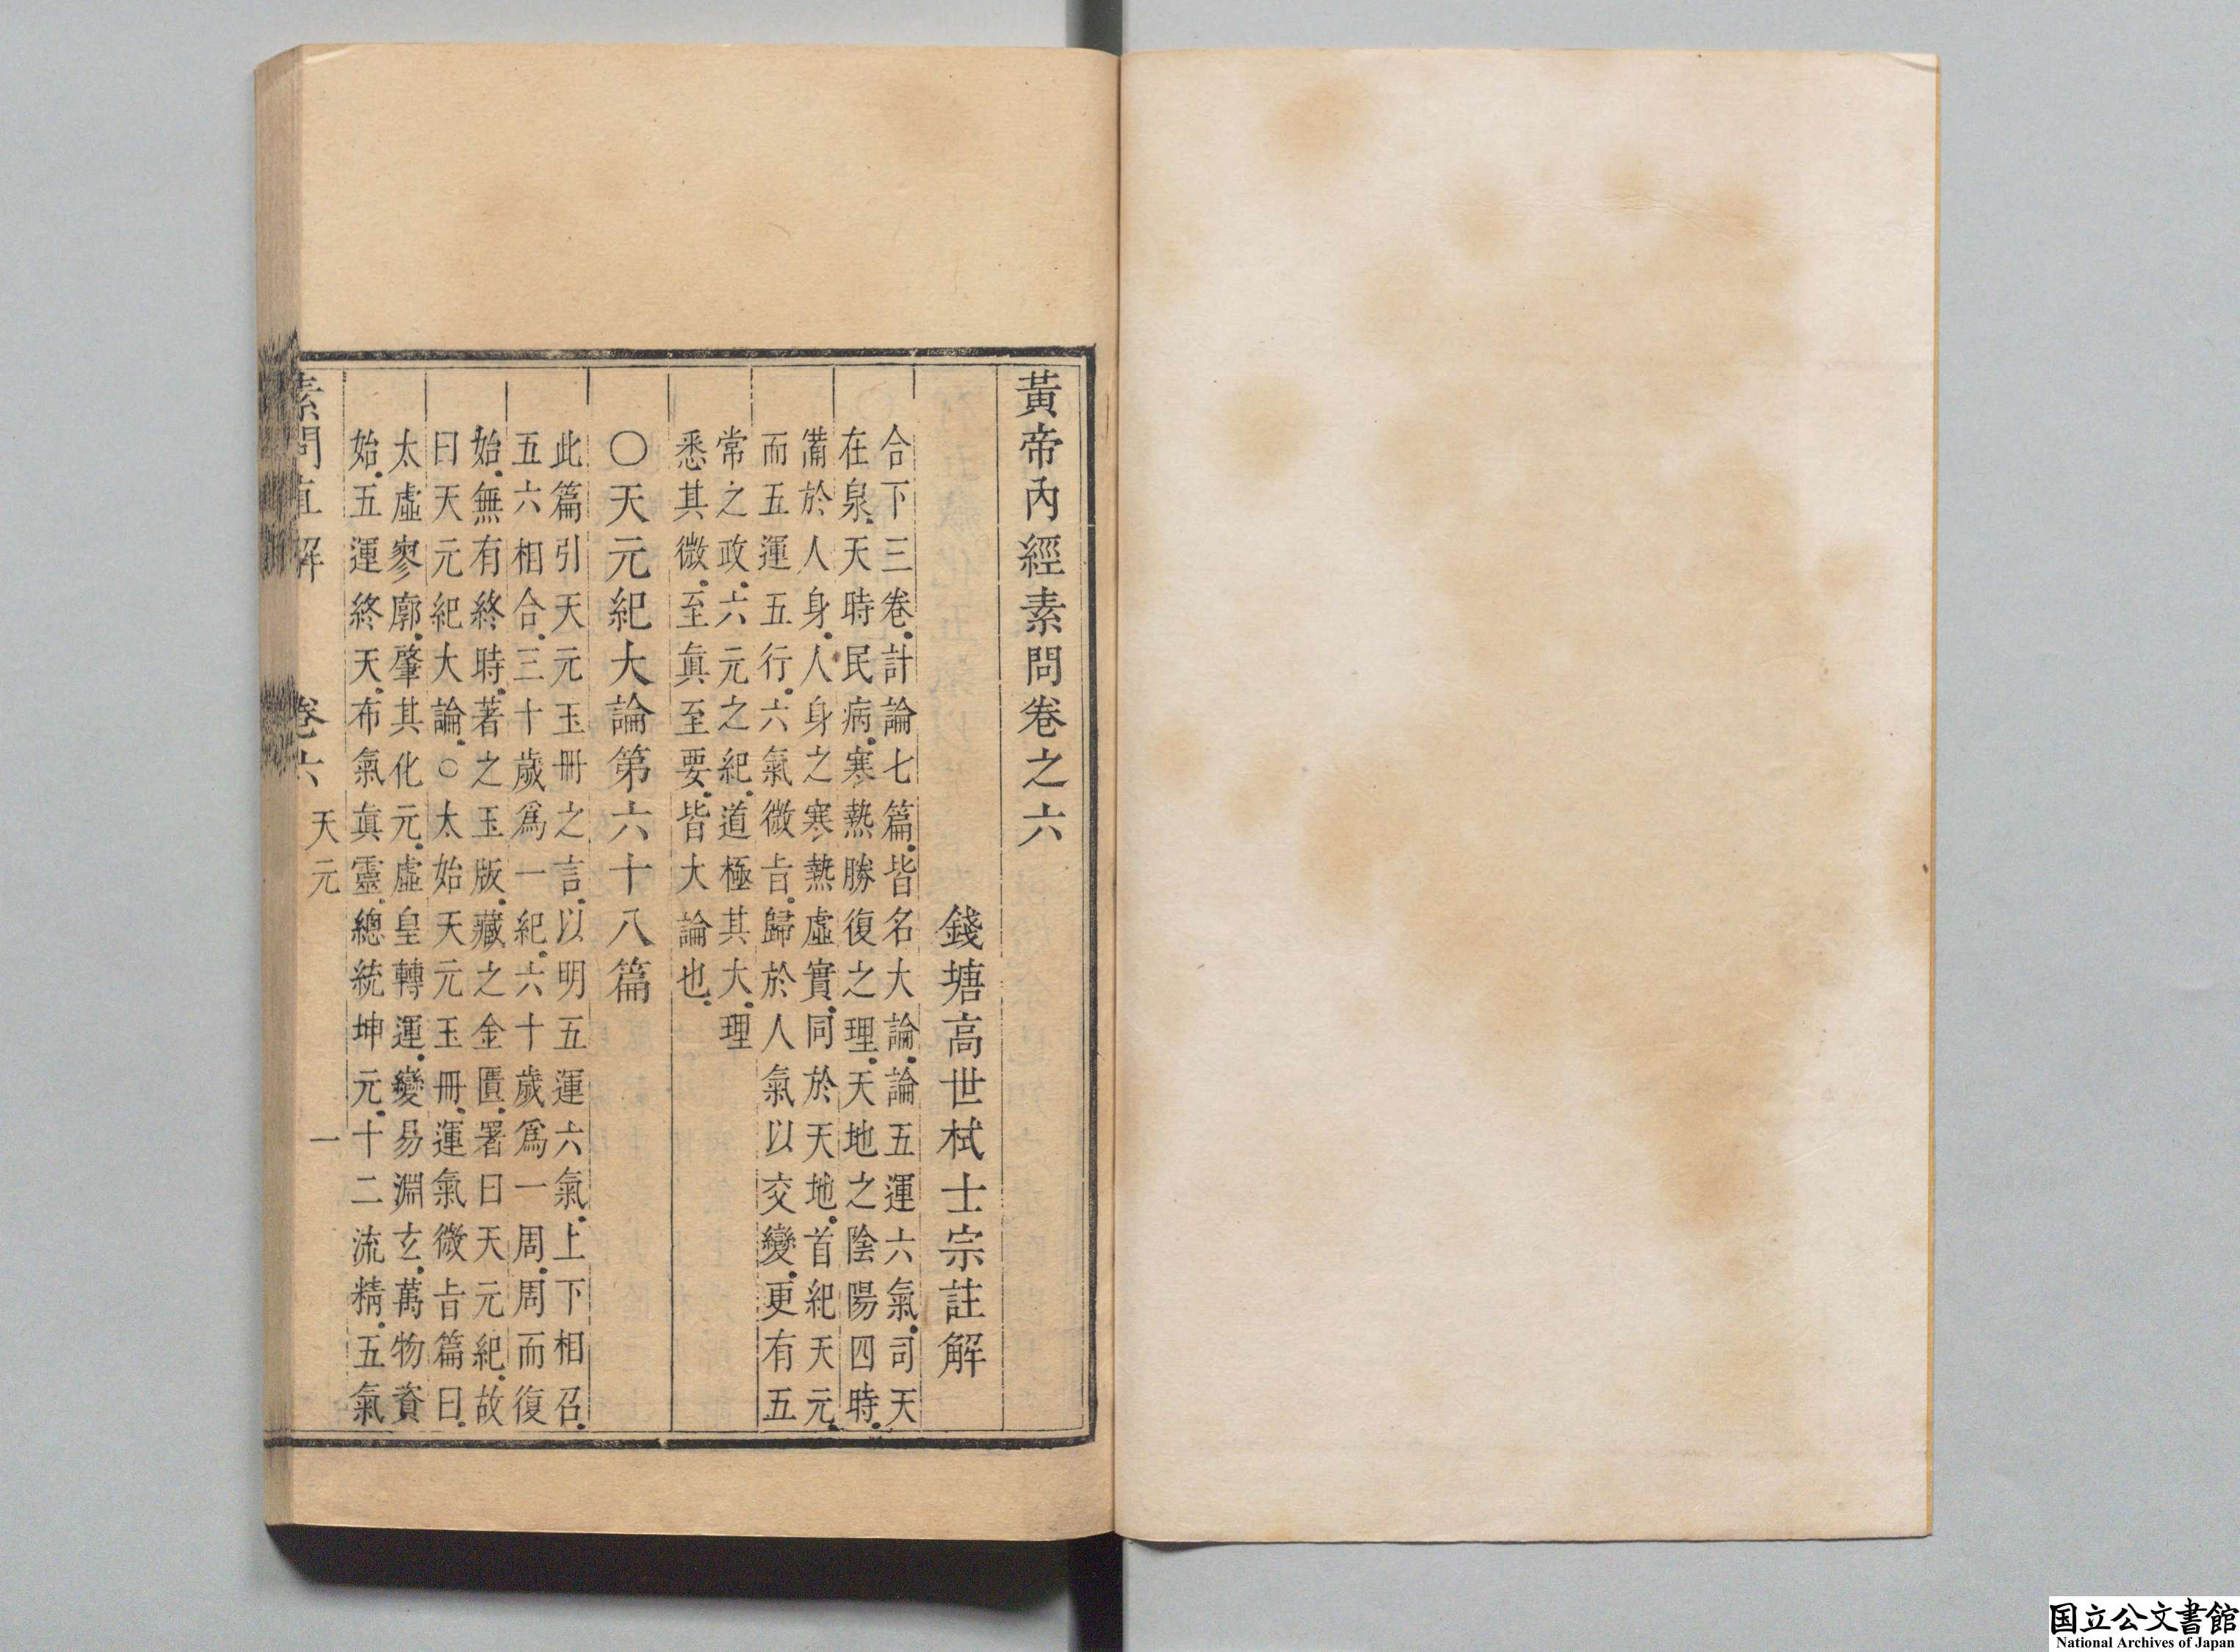 黃帝內經素問卷之六
錢塘高世栻士宗註解
合下三卷計論七篇皆名大論論五運六氣司天
在泉天時民病寒熱勝復之理天地之陰陽四時
備於人身人身之寒熱虛實同於天地首紀天元
而五運五行六氣微㫖歸於人氣以交變更有五
常之政六元之紀道極其大理
悉其微至眞至要皆大論也
〇天元紀大論第六十八篇
此篇引天元玉冊之言以明五運六氣上下相召
五六相合三十歲爲一紀六十歲爲一周周而復
始無有終時著之玉版藏之金匱署曰天元紀故
曰天元紀大論〇太始天元玉冊運氣微㫖篇曰
太虛寥廓肇其化元虛皇轉運變易淵玄萬物資
始五運終天布氣眞靈總統坤元十二流精五氣
素問直解 卷六 天元 一
国立公文書館
National Archives of Japan